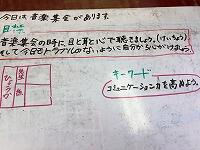 今日は音楽集会があります。
目標
音楽集会の時に目と耳と心で聴きましょう。(けいちょう)
そして今日もトラブルのない、ように自分から心がけましょう
キーワード
コミュニケーション力を高めよう。